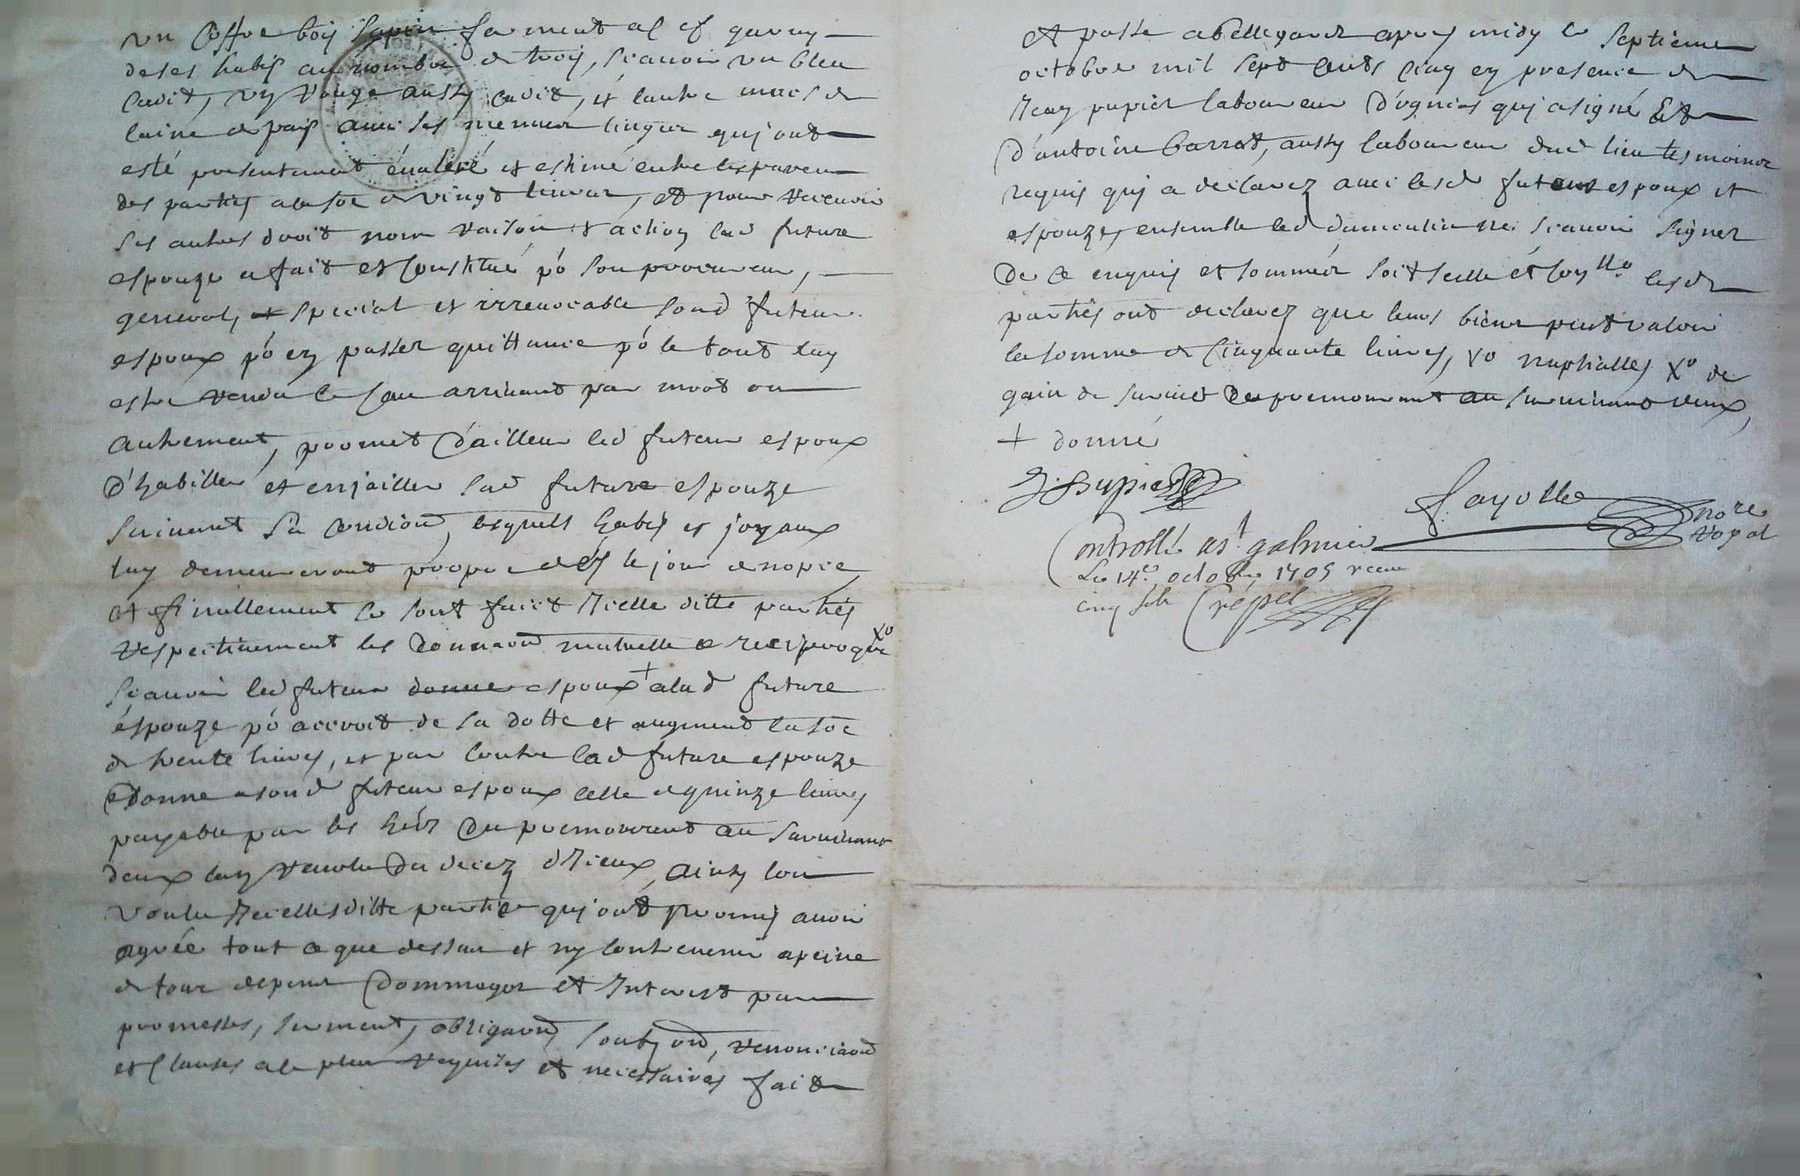 un coffre bois sapin ferment a clef garny
de ses habis au nombre de trois, scavoir un bleu
cadit, un rouge aussy cadit, et lautre mois de
laine de pais avec ses menues linges quj ont
esté presentement évalué et estimé entre les paren
des parties a la so͞e de vingt livres, et pour recevoir
ses autres droit nom raison et action lad future
espouze a fait et constitué po͞ son procureur,
general, et special et irrevocable sond futeur
espoux po͞ en passer quittance po͞ le tout luy
estre rendu le cas arrivant par mort ou
autrement, promet d'ailleur led futeur espoux
d'habiller et enjailler sad future espouze
suivant sa condion͞, lesquels habis et joyaux
luy demeureront propre dés le jour de nopce,
et finallement se sont faict Jcelle ditte parties
respectivement les donnaon͞ mutuelle et reciproque xo
scavoir led futeur donne espoux + a lad future
éspouze po͞ accroit de sa dotte et augment la so͞e
de trente livres, et par contre lad future espouze
donne a sond futeur espoux celle de quinze livres
payable par les hérs du premourant au survivant
deux lan revolu du decez d'Jceux, ainsy lon
voulu Jcelles ditte partie quj ont promis avoir
agréé tout ce que dessus et ny contrevenir a peine
de tous depens dommages et Interest par
promesses, serment, obligaon͞, soubzon͞, renonciaon͞
et clauses a le plus requises et necessaires fait
et passé a bellegarde apres midy le septieme
octobre mil sept cents cinq en presence de
Jean pupier laboureur d'ognies quj a signé Et
d'antoine barrat, aussy laboureur dud lieu tesmoines
requis quj a declarez avec lesd futeurs espoux et
espouze, ensemble led dumoulin ne scavoir signer
de ce enquis et sommés soit scellé et con͞llo lesd
parties ont declarez que leurs biens peut valoir
la somme de cinquante livres, xo nuptialles xo de
gain de survie du premourant au survivant deux,
+ donné
J. pupier
fayolle
nore
royal
Controllé a st galmier
Le 14e octobre 1705 receu
cinq sols Crépet